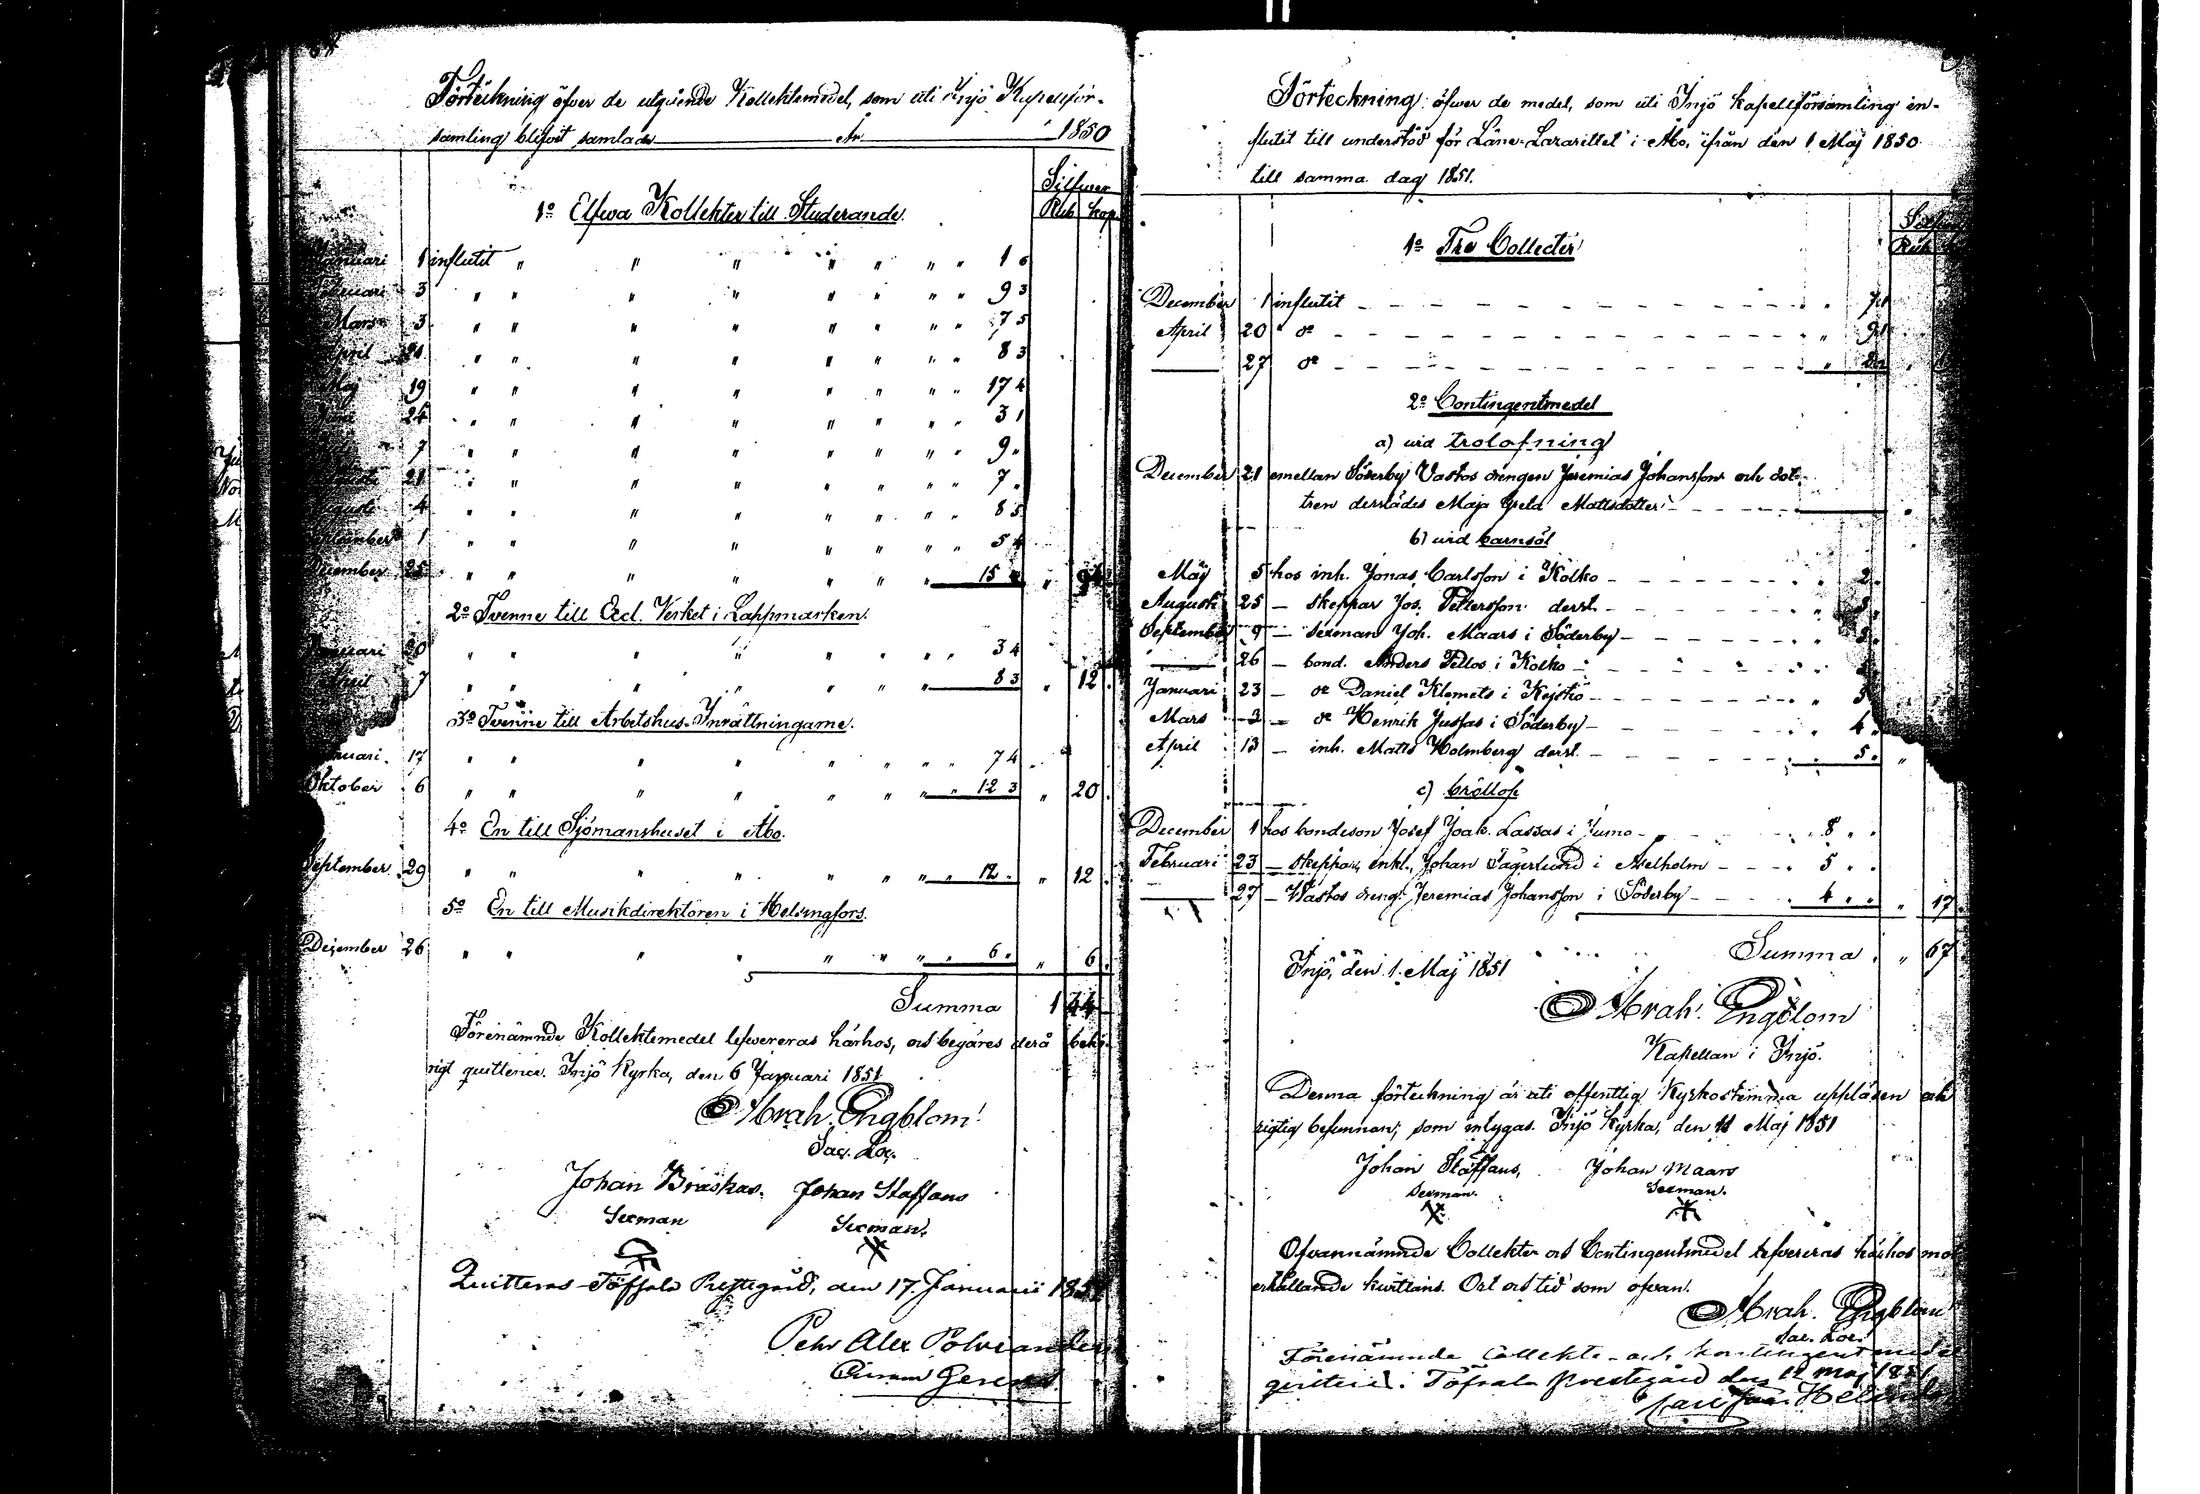 Förteckning öfver de utgående Kollektmedel, som uti Injö Kapellför-
samling blifvit samlade År 1850
Silfver
Rub. kop.
1º Elfva Kollekter till Studerande.
Januari 1 influtit " " " " " " " 1
Februari 3 " " " " " " " " 9 3
Mars 3 " " " " " " " " 7 5
April " " " " " " " " 8 3
Maj 19 " " " " " " " " 17 4
24 " " " " " " " " 3 1
7 " " " " " " " " 9 "
21 " " " " " " " " 7 "
Augusti 4 " " " " " " " " 8 5
September 1 " " " " " " " " 5 4
December 25 " " " " " " " 15
2º Tvenne till Eccl. Verket i Lappmarken.
" " " " " " " " 3 4
April 7 " " " " " " " 8 3 " 12
3º Tvenne till Arbetshus-Inrättningarne.
17 " " " " " " " " 7 4
Oktober 6 " " " " " " " " 12 3 " 20
4º En till Sjömanshuset i Åbo.
September 29 " " " " " " " " 12 " " 12
5º En till Musikdirektören i Helsingfors.
December 26 " " " " " " " " 6 " " 6
Summa 1
Förenämnde Kollektmedel lefvereras härhos, och begäres derå behö-
rigt quittence. Injö Kyrka, den 6 Januari 1851
Abrah. Engblom
Sac. Loc.
Johan Bräskas. Johan Staffans
Sexman Sexman.
Quitteras Töfsala Prestegård, den 17 Januarii 1851
Pehr Alex Polviander
Gerens.
Förteckning öfver de medel, som uti Injö kapellförsamling in-
flutit till understöd för Läne-Lazarettet i Åbo, ifrån den 1 Maj 1850
till samma dag 1851.
1º Tre Collecter
December 1 influtit
April 20 dº
27 dº
2º Contingentmedel
a) vid trolofning
December 21 emellan Söderby Vastos drengen Jeremias Johansson och dot-
tren derstädes Maja Greta Mattsdotter
b) vid barnsöl
Maj 5 hos inh. Jonas Carlsson i Kolko 2
Augusti 25 skeppar Jos. Pettersson derst.
September 9 sexman Joh. Maars i Söderby
26 bond. Anders Pellos i Kolko
Januari 23 dº Daniel Klemets i Kejstiö
Mars 3 dº Henrik Jussas i Söderby 4
April 13 inh. Matts Holmberg derst. 5
c) bröllop
December 1 hos bondeson Josef Joak. Lassas i Jumo 8 " "
Februari 23 skeppar, enkl. Johan Sägerlund i Aselholm 5 " "
27 Wastos dreng. Jeremias Johansson i Söderby 4 " " " 17
Summa " 67
Injö, den 1. Maj 1851
Abrah. Engblom
Kapellan i Injö.
Denna förteckning är uti offentlig Kyrkostämma uppläsen och
rigtig befunnen; som intygas. Injö Kyrka, den 11 Maj 1851
Johan Staffans, Johan Maars
Sexman. Sexman.
Ofvannämnde Collekter och Contingentmedel lefvereras härhos mot
erhållande kvittens. Ort och tid som ofvan.
Abrah. Engblom
Sac. Loc.
Förenämnde collekt- och kontingentmedel
qvitteras. Töfsala prestegård den 12 Maj 1851